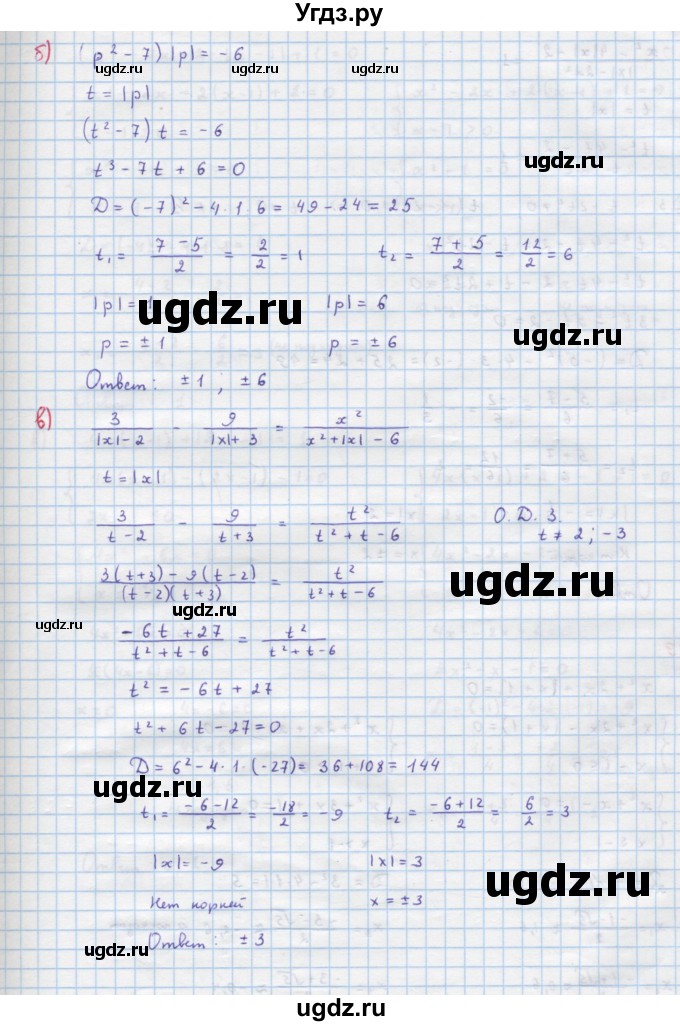 Угдз.ру
б) (p² - 7) |p| = - 6
ugdz.ru ugdz.ru ugdz.ru
t = |p|
(t² - 7) t = - 6
ugdz.ru
t³ - 7t + 6 = 0
D = (-7)² - 4 · 1 · 6 = 49 - 24 = 25
t₁ = (7 - 5)/2 = 2/2 = 1 t₂ = (7 + 5)/2 = 12/2 = 6
|p| = 1 |p| = 6
ugdz.ru ugdz.ru
p = ± 1 p = ± 6
Ответ: ± 1 ; ± 6
в) 3/(|x| - 2) - 9/(|x| + 3) = x²/(x² + |x| - 6)
t = |x|
3/(t - 2) - 9/(t + 3) = t²/(t² + t - 6) О.Д.З.
t ≠ 2 ; - 3
(3(t+3) - 9(t-2))/((t-2)(t+3)) = t²/(t² + t - 6)
ugdz.ru
ugdz.ru
ugdz.ru
(- 6t + 27)/(t² + t - 6) = t²/(t² + t - 6)
t² = - 6t + 27
t² + 6t - 27 = 0
D = 6² - 4 · 1 · (-27) = 36 + 108 = 144
ugdz.ru
t₁ = (-6 - 12)/2 = -18/2 = - 9 t₂ = (-6 + 12)/2 = 6/2 = 3
|x| = - 9 |x| = 3
ugdz.ru
Нет корней x = ± 3
Ответ: ± 3
ugdz.ru
ugdz.ru